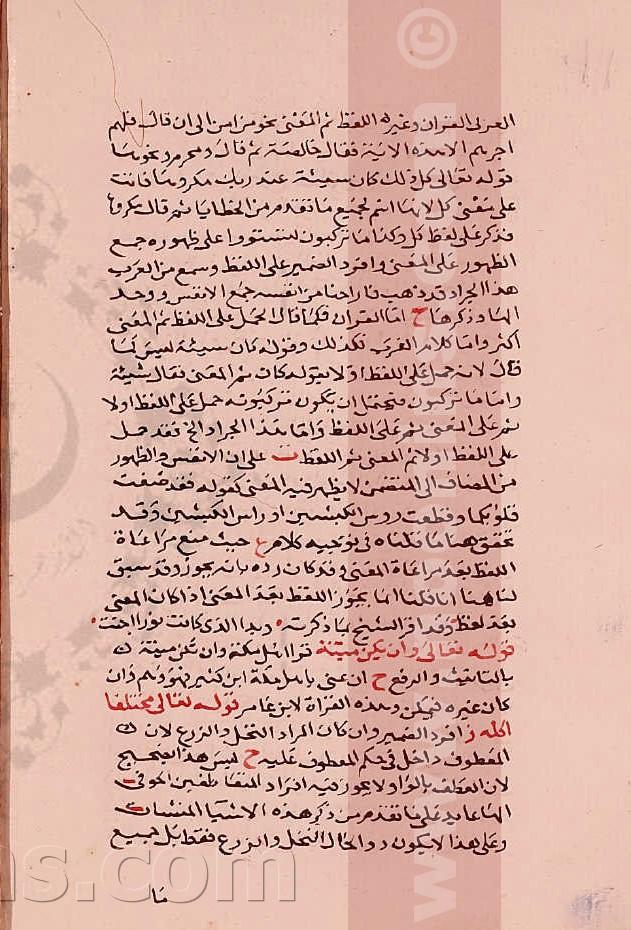 العزلى القران وغيره اللفظ ثم المعنى نحو من امن الى ان قال فلهم
اجرهم الا هذه الاية فقال خالصة ثم قال ومحرم ونحوها
قوله تعالى كل ذلك كان سيئة عند ربك مكروها فانث
على معنى كل لانها اسم لجميع ما تقدم من الخطايا ثم قال مكروها
فذكر على لفظ كل وكذا ما تركبون لتستووا على ظهوره جمع
الظهور على المعنى وافرد الضمير على اللفظ وسمع من العرب
هذا الجراد قد ذهب فاراحنا من انفسه جمع الانفس ووحد
الهاء وذكرها ح اما القران فكما قال الحمل على اللفظ ثم المعنى
اكثر واما كلام العرب فكذلك وقوله كان سيئة ليس كما
قال لانه حمل على اللفظ اولا بقوله كان ثم المعنى فقال سيئة
واما ما تركبون فيحتمل ان يكون تركبونه حمل على اللفظ اولا
ثم على المعنى ثم على اللفظ واما هذا الجراد الخ فقد حمل
على اللفظ اولا ثم المعنى ثم اللفظ ت على ان الانفس والظهور
من المضاف الى المتضمن لا يظهر فيه المعنى كقوله فقد صغت
قلوبكما وقطعت روس الكبشين او راس الكبشين وقد
تحقق هنا ما قلناه في توجيه كلام ع حيث منع مراعاة
اللفظ بعد مراعاة المعنى وقد كان رده بانه يجوز وقد سبق
لنا هنا انا قلنا انما يجوز اللفظ بعد المعنى اذا كان المعنى
بعد لفظ وقد اقر الشيخ بما ذكرت
قوله تعالى وان يكن ميتة قرا اهل مكة وان تكن ميتة
بالتانيث والرفع ح ان عنى باهل مكة ابن كثير فهو وهم وان
كان غيره فيمكن وهذه القراة لابن عامر قوله تعالى مختلفا
اكله ز افرد الضمير وان كان المراد النخل والزرع لان
المعطوف داخل في حكم المعطوف عليه ح ليس هذا بصحيح
لان العطف بالواو لا يجوز فيه افراد المتعاطفين الحوفي
الهاء عايد على ما تقدم من ذكر هذه الاشيا المنشات
وعلى هذا لا يكون ذو الحال النخل والزرع فقط بل جميع
ما
www.
©
ns.com